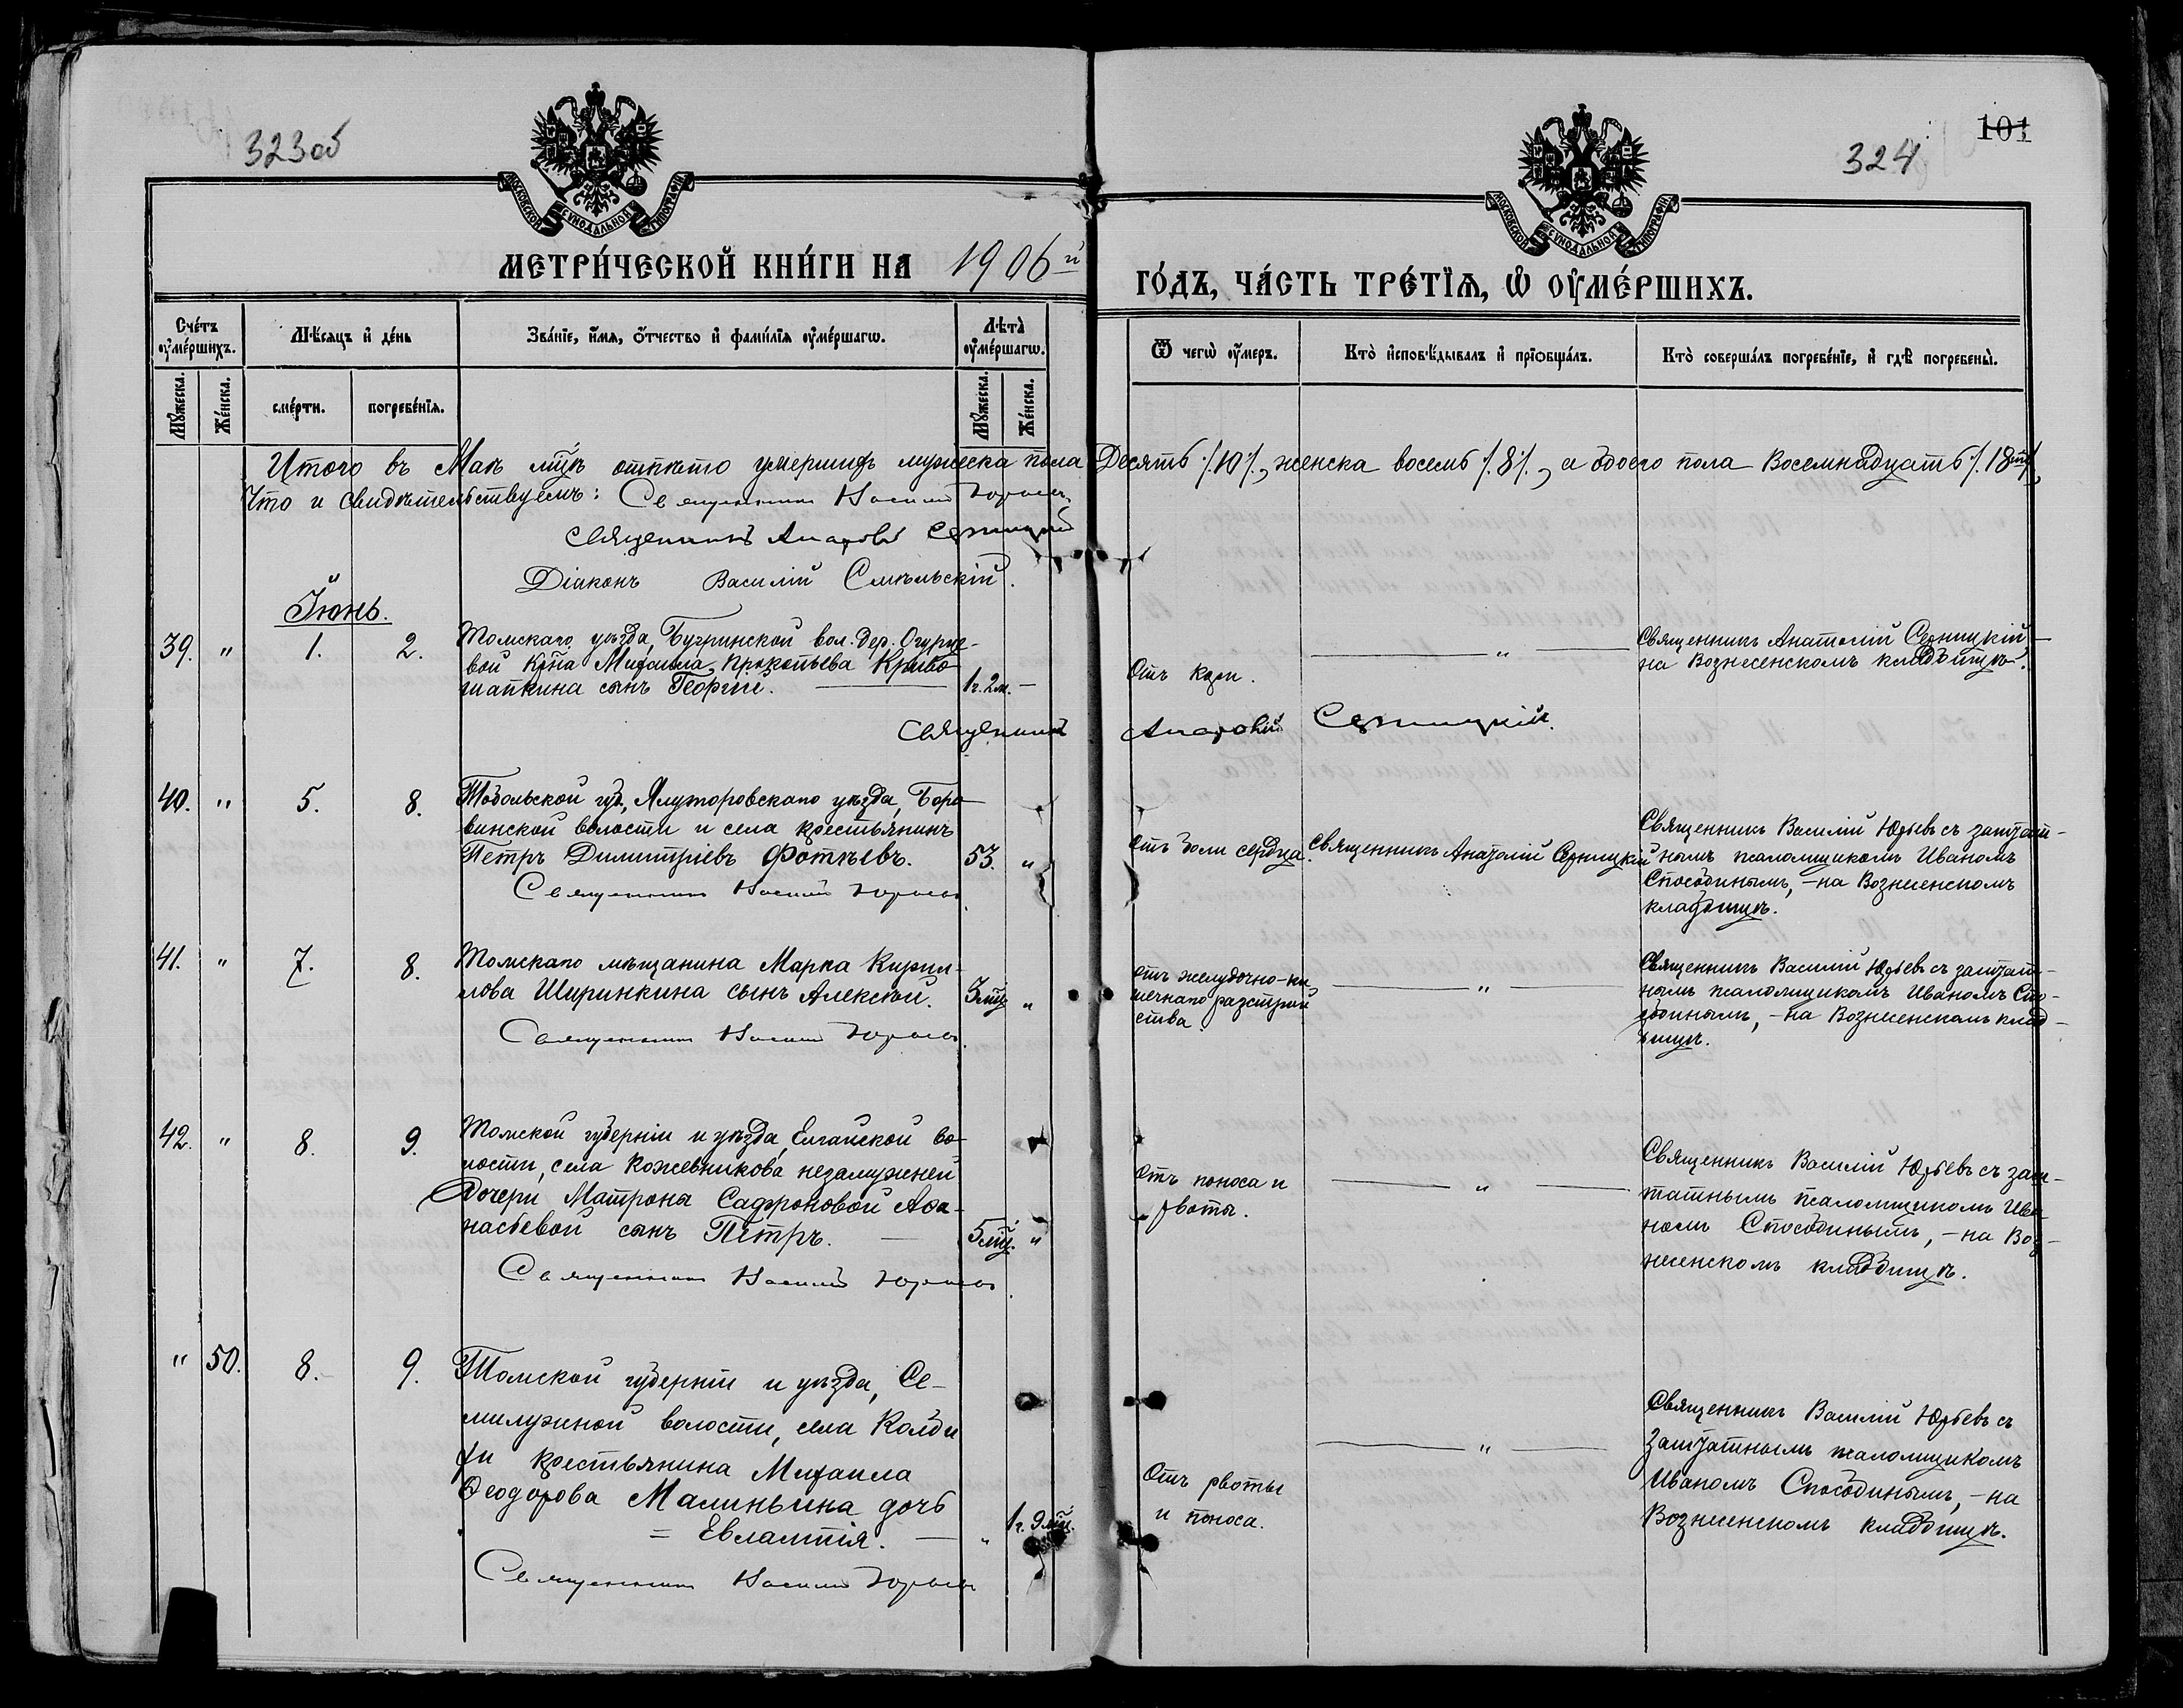 323 об
МОСКОВСКОЙ СѴНОДАЛЬНОЙ ТИПОГРАФІИ
МЕТРИ́ЧЕСКОЙ КНИ́ГИ НА 1906 й
Сче́тъ ᲂу҆ме́ршихъ.
Мѣ́сяцъ и҆ де́нь
Зва́ніе, и҆́мя, ѻ҆́тчество и҆ фами́лїя ᲂу҆ме́ршагѡ.
Лѣ́та ᲂу҆ме́ршагѡ.
Мꙋ́жеска.
Же́нска.
сме́рти.
погребе́нїя.
Мꙋ́жеска.
Же́нска.
324
101
МОСКОВСКОЙ СѴНОДАЛЬНОЙ ТИПОГРАФІИ
ГО́ДЪ, ЧА́СТЬ ТРЕ́ТЇѦ, Ѡ҆ ОУ҆МЕ́РШИХЪ.
Ѿ чегѡ̀ ᲂу҆́меръ.
Кто̀ и҆сповѣ́дывалъ и҆ прїѻбща́лъ.
Кто̀ соверша́лъ погребе́нїе, и҆ гдѣ̀ погребены̀.
Итого въ Маѣ м̃цѣ отпѣто умершихъ мужеска пола Десять /.10/., женска восемь /.8/., а обоего пола Восемнадцать /.18ть/.,
Что и свидѣтельствуемъ: Священникъ Василій Юрьевъ
Священникъ Анатолій Сърницкій
Діаконъ Василій Смѣльскій.
Іюнь.
39. " 1. 2. Томскаго уѣзда, Бугринской вол. дер. Огурце-
вой кр̃на Михаила Прокопьева Криво
шапкина сынъ Георгій. 1г. 2м. —
Отъ кори.
"
Священникъ Анатолій Сърницкій —
на Вознесенскомъ кладбищѣ.
Священникъ Анатолій Сърницкій.
40. " 5. 8. Тобольской губ., Ялуторовскаго уѣзда, Боро-
винской волости и села крестьянинъ
Петръ Димитріевъ Фотѣевъ. 53. "
Священникъ Василій Юрьевъ
отъ боли сердца.
Священникъ Анатолій Сърницкій
Священникъ Василій Юрьевъ съ заштат-
нымъ псаломщикомъ Иваномъ
Способинымъ, — на Вознесенскомъ
кладбищѣ.
41. " 7. 8. Томскаго мѣщанина Марка Кирил-
лова Ширинкина сынъ Алексѣй. 3 м̃ц. "
Священникъ Василій Юрьевъ.
отъ желудочно-ки
шечнаго разстрой
ства.
"
Священникъ Василій Юрьевъ съ заштат-
нымъ псаломщикомъ Иваномъ Спо-
собинымъ, — на Вознесенскомъ клад-
бищѣ.
42. " 8. 9. Томской губерніи и уѣзда, Елгайской во-
лости, села Кожевникова незамужней
дочери Матроны Сафроновой Аѳа-
насьевой сынъ Петръ. 5 м̃ц. "
Священникъ Василій Юрьевъ
Отъ поноса и
рвоты.
"
Священникъ Василій Юрьевъ съ заш-
татнымъ псаломщикомъ Ива-
номъ Способинымъ, — на Воз-
несенскомъ кладбищѣ.
" 50. 8. 9. Томской губерніи и уѣзда, Се-
милужной волости, села Колби
хи крестьянина Михаила
Ѳеодорова Малиньина дочь
= Евлампія. — " 1г. 9 м̃ц.
Священникъ Василій Юрьевъ
Отъ рвоты
и поноса.
"
Священникъ Василій Юрьевъ съ
заштатнымъ псаломщикомъ
Иваномъ Способинымъ, — на
Вознесенскомъ кладбищѣ.